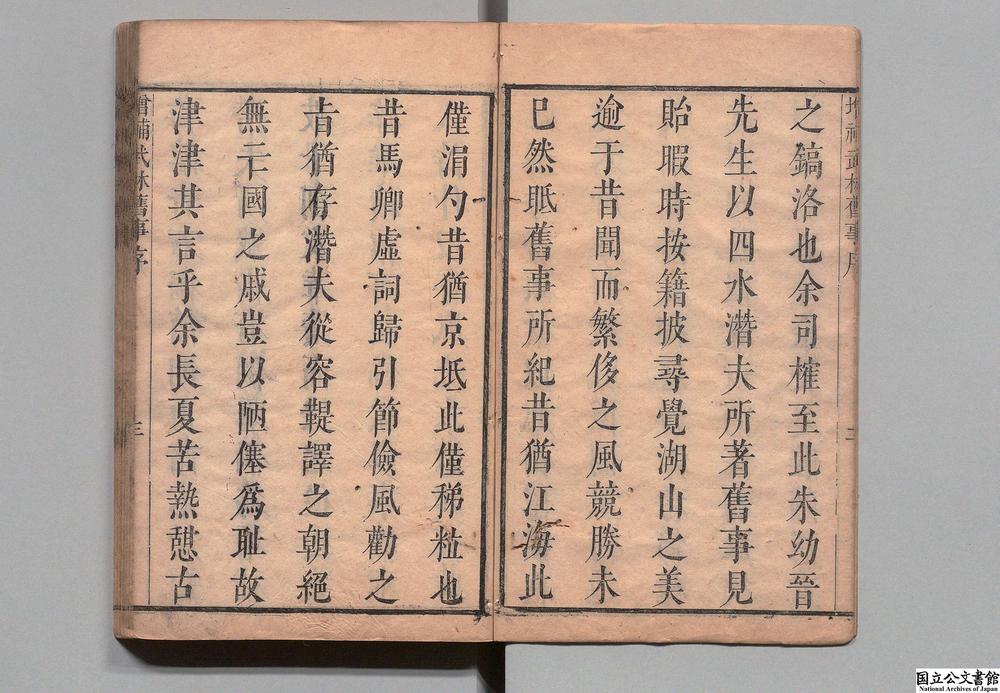 之鎬洛也余司榷至此朱幼晉
先生以四水潛夫所著舊事見
貽暇時按籍披尋覺湖山之美
逾于昔聞而繁侈之風競勝未
已然眡舊事所紀昔猶江海此
僅涓勺昔猶京坻此僅稊粒也
昔馬卿虛詞歸引節儉風勸之
旨猶存潛夫從容鞮譯之朝絕
無亡國之戚豈以陋僿爲耻故
津津其言乎余長夏苦熱憇古
增補武林舊事序
二
增補武林舊事序
三
国立公文書館
National Archives of Japan